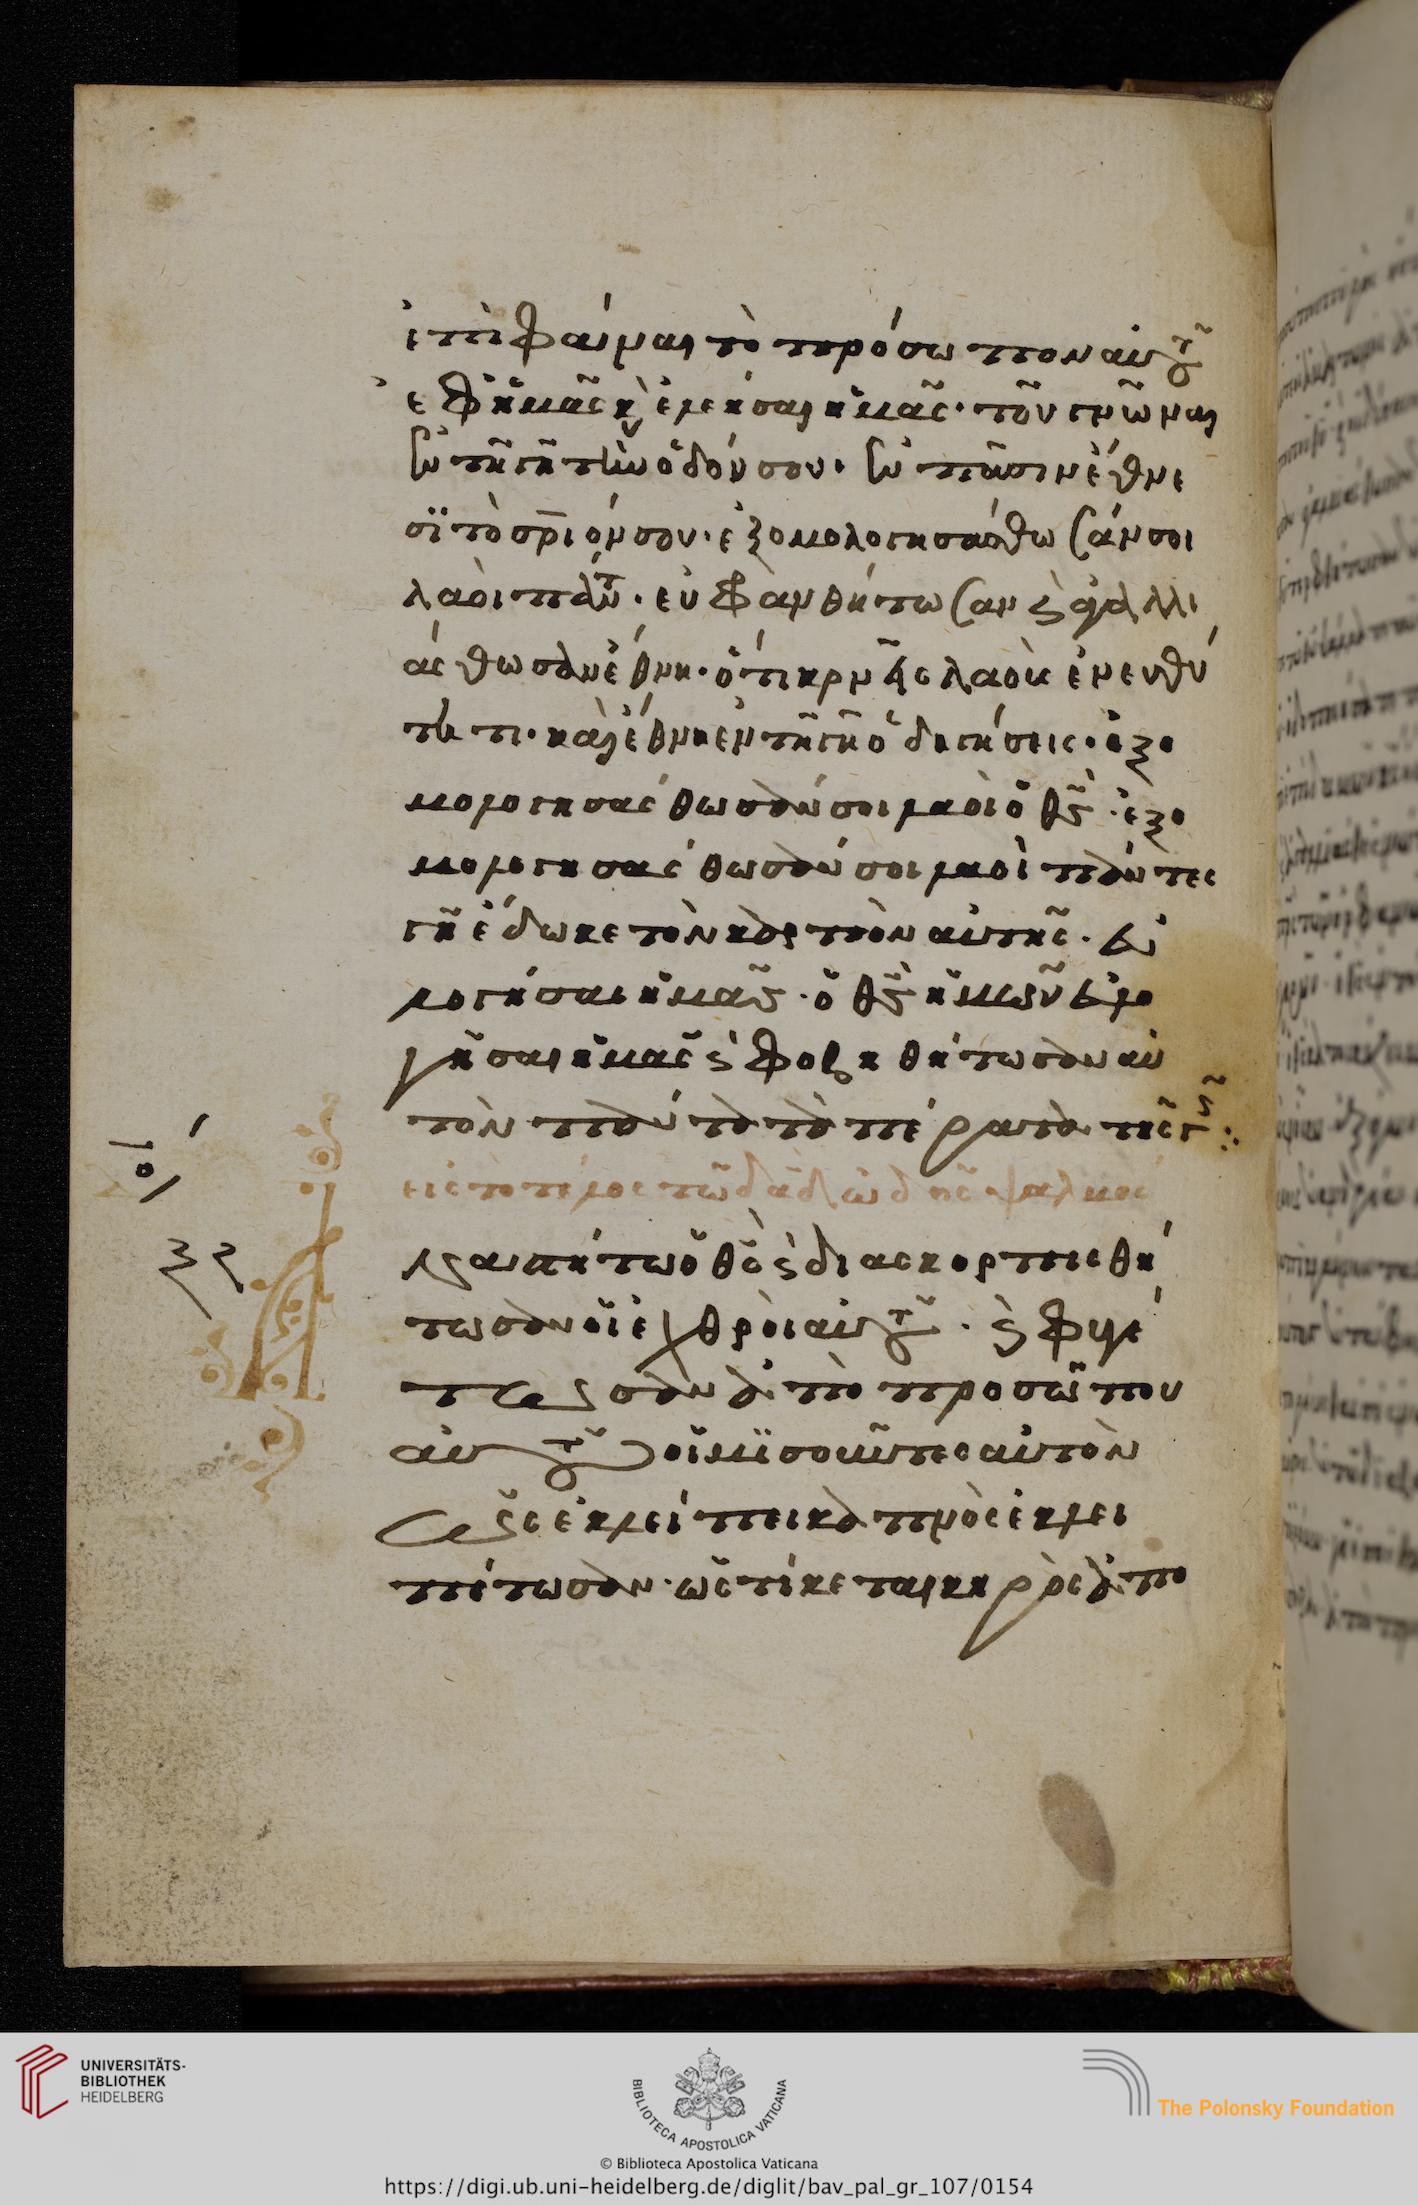 ἐπιφάναι τὸ πρόσωπον αὐτοῦ
ἐφ ἡμᾶς κ ἐλεήσαι ἡμᾶς· τοῦ γνῶναι
ἐν τῆ γῆ τὴν ὁδόν σου· ἐν πᾶσιν ἔθνε
σϊ τὸ σρ̅ιόν σου· ἐξομολογησάσθωσάν σοι
λαοὶ πάντ· εὐφρανθήτωσαν κ ἀγαλλι
άσθωσαν ἔθνη· ὅτι κρινῆς λαοὺς ἐν εὐθύ
τητι· καὶ ἔθνη ἐν τῆ γῆ ὁδηγήσεις· ἐξο
μολογησάσθωσάν σοι λαοὶ ὁ θς· ἐξο
μολογησάσθωσάν σοι λαοὶ πάντες
γῆ ἔδωκε τὸν καρπὸν αὐτῆς· εὐ
λογήσαι ἡμᾶς· ὁ θς ἡμῶν εὐλο
γήσαι ἡμᾶς κ φοβηθήτωσαν αὐ
τὸν πάντα τὰ πέρατα τῆς γῆς:
εἰς τὸ τέλος τῶ δαδ ὠδῆς ψαλμός
ναστήτω ὁ θς κ διασκορπισθή
τωσαν οἱ ἐχθροὶ αὐτοῦ· κ φυγέ
τωσαν ἀπὸ προσώπου
αὐτοῦ οἱ μϊσοῦντες αὐτὸν
ὡς ἐκλείπει καπνὸς ἐκλει
πέτωσαν· ὡς τίκεται κηρὸς ἀπὸ
UNIVERSITÄTS-
BIBLIOTHEK
HEIDELBERG
BIBLIOTECA APOSTOLICA VATICANA
The Polonsky Foundation
© Biblioteca Apostolica Vaticana
https://digi.ub.uni-heidelberg.de/diglit/bav_pal_gr_107/0154